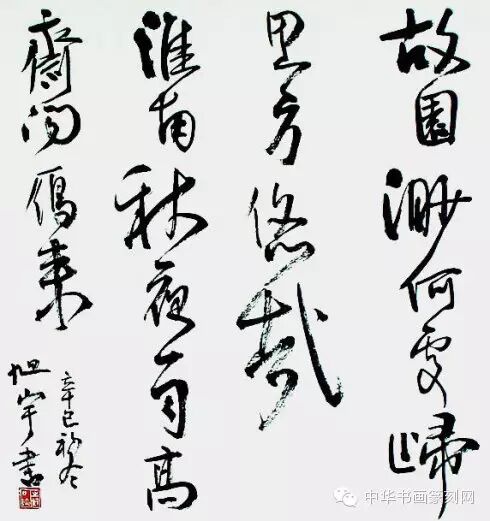 故園渺何處歸
思方悠哉
淮南秋夜雨高
齋聞鴈來
辛巳初冬
旭宇書
中华书画篆刻网